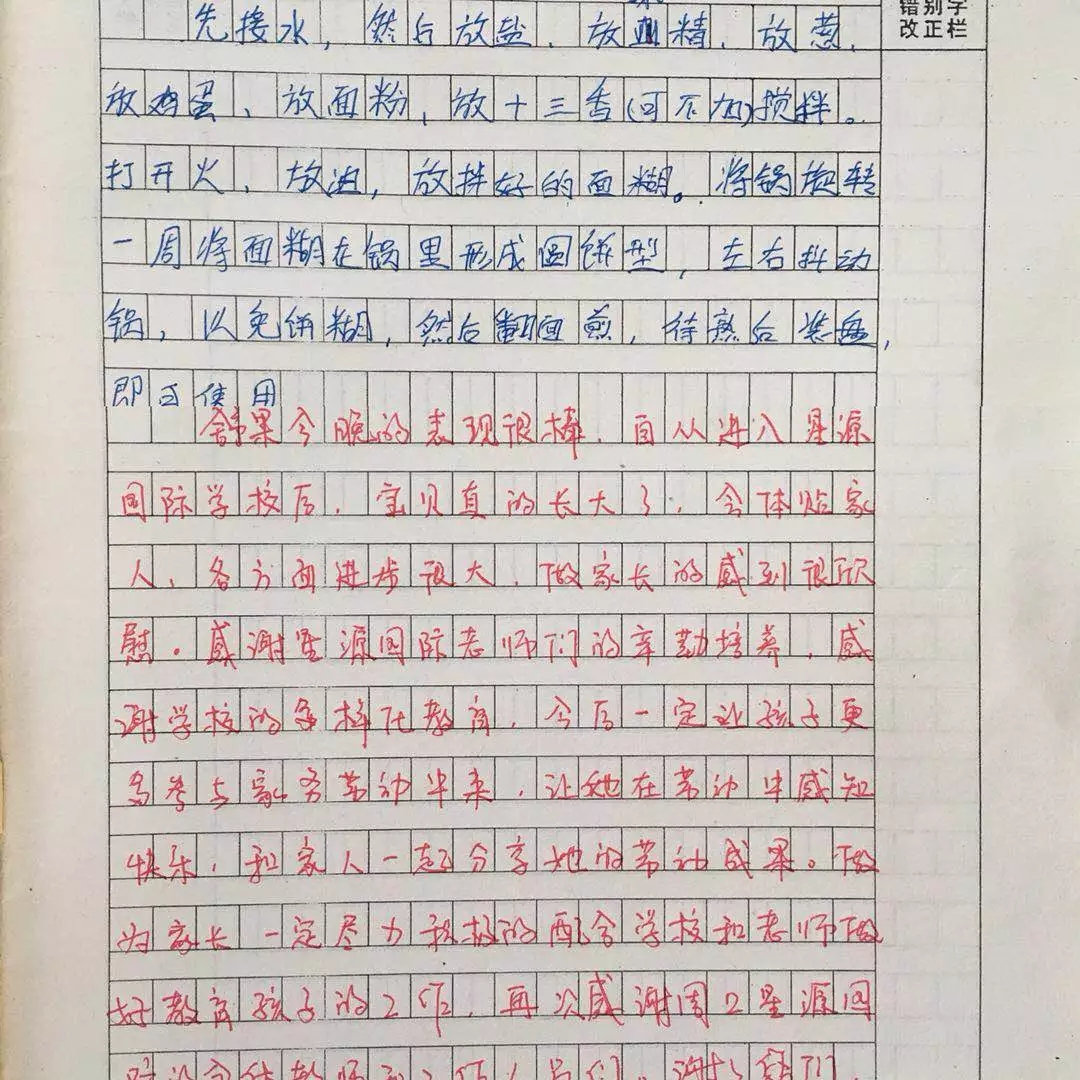 错别字
改正栏
先接水，然后放盐、放鸡精、放葱、
放鸡蛋、放面粉，放十三香(可不加)搅拌。
打开火、放油，放拌好的面糊。将锅旋转
一周将面糊在锅里形成圆饼型，左右抖动
锅，以免饼糊，然后翻面煎，待熟后装盘，
即可使用
舒果今晚的表现很棒，自从进入星源
国际学校后，宝贝真的长大了，会体贴家
人、各方面进步很大，做家长的感到很欣
慰。感谢星源国际老师们的辛勤培养，感
谢学校的多样化教育，今后一定让孩子更
多参与家务劳动中来，让她在劳动中感知
快乐，和家人一起分享她的劳动成果。做
为家长一定尽力积极的配合学校和老师做
好教育孩子的工作，再次感谢周口星源国
际的全体教师和工作人员们，谢谢你们，